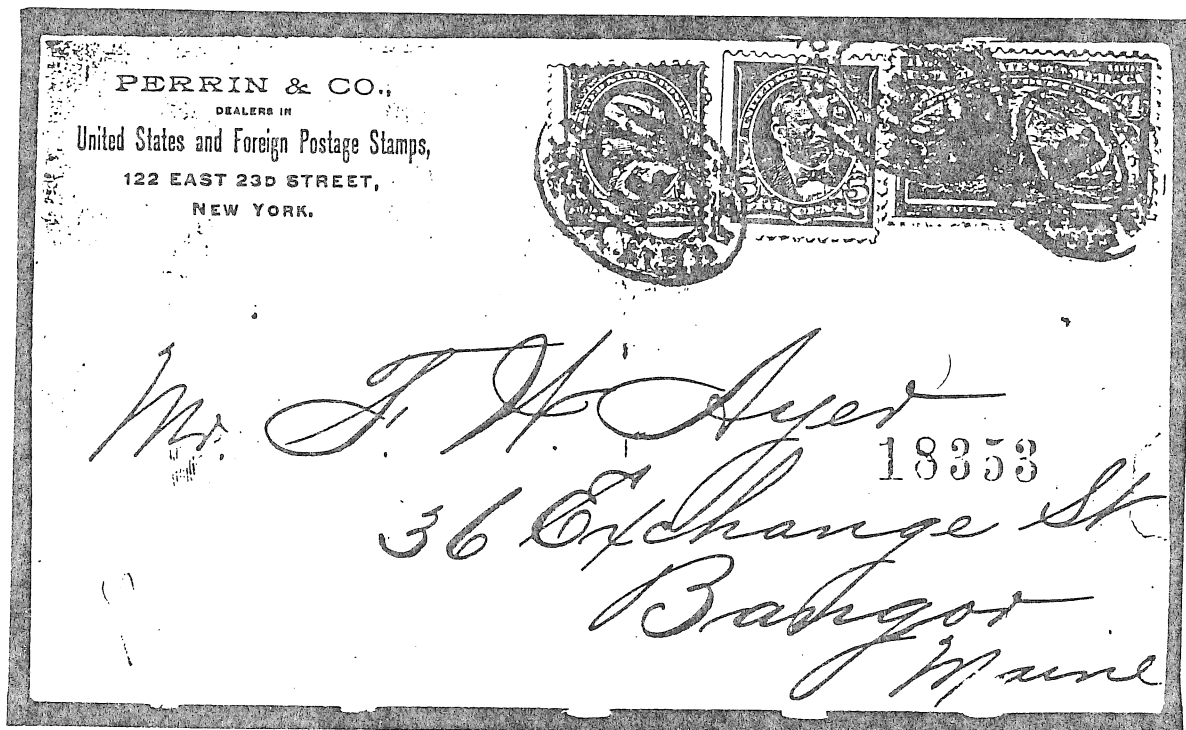 PERRIN & CO.,
DEALERS IN
United States and Foreign Postage Stamps,
122 EAST 23D STREET,
NEW YORK.
5 5
Mr. F. W. Ayer
18353
36 Exchange St
Bangor
Maine